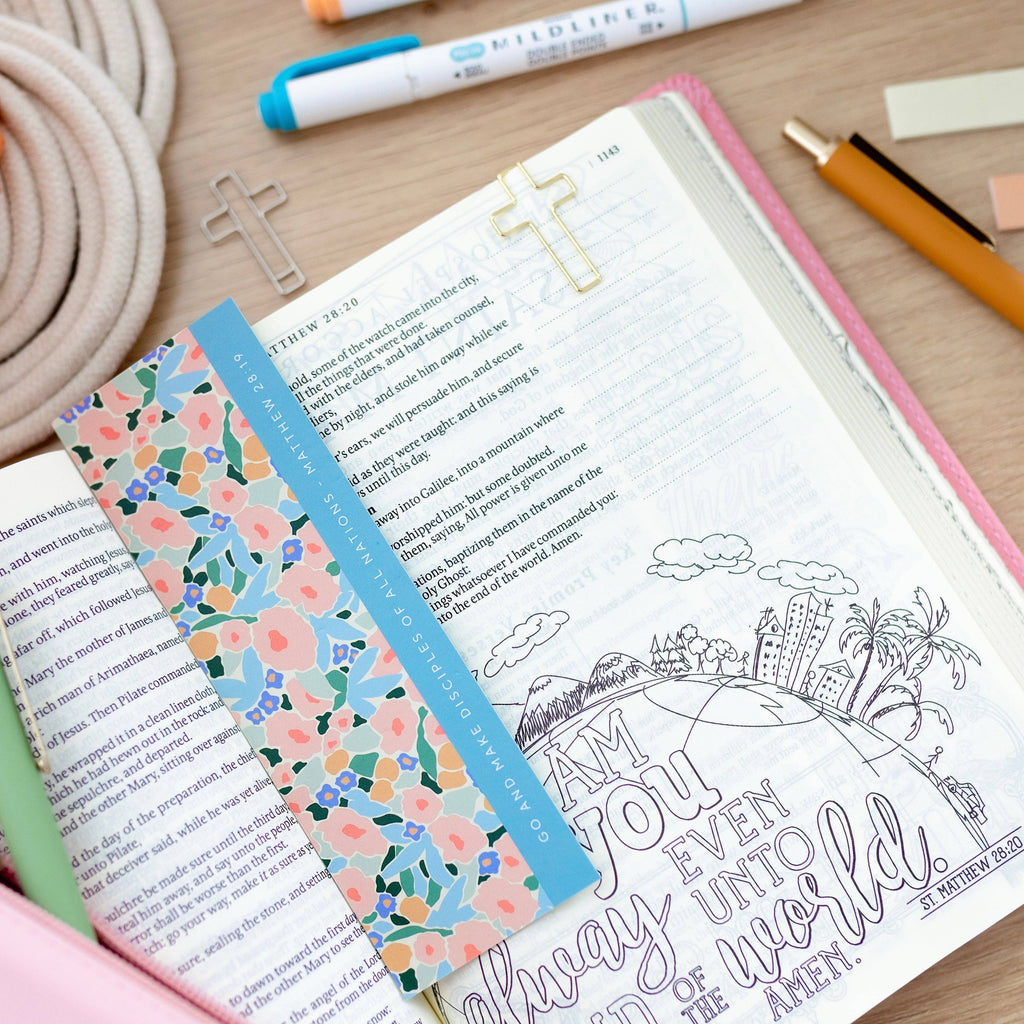 MILDLINER
DOUBLE ENDED
1143
MATTHEW 28:20
hold, some of the watch came into the city,
ll the things that were done.
d with the elders, and had taken counsel,
liers,
me by night, and stole him away while we
r's ears, we will persuade him, and secure
id as they were taught: and this saying is
vs until this day.
away into Galilee, into a mountain where
worshipped him: but some doubted.
them, saying, All power is given unto me
ations, baptizing them in the name of the
oly Ghost;
ings whatsoever I have commanded you:
nto the end of the world. Amen.
GO AND MAKE DISCIPLES OF ALL NATIONS - MATTHEW 28:19
the saints which slept
n, and went into the holy
e with him, watching Jesus,
done, they feared greatly, say
afar off, which followed Jesus
Mary the mother of James and
rich man of Arimathaea, named
of Jesus. Then Pilate commanded
y, he wrapped it in a clean linen cloth,
which he had hewn out in the rock: and
e sepulchre, and departed.
and the other Mary, sitting over against
d the day of the preparation, the chief
unto Pilate,
that deceiver said, while he was yet alive
pulchre be made sure until the third day,
teal him away, and say unto the people
rror shall be worse than the first.
tch: go your way, make it as sure as ye
sure, sealing the stone, and setting
to dawn toward the first day
nd the other Mary to see the
the angel of the Lord
stone from the door
snow:
I AM
YOU
always
EVEN
UNTO
OF
THE
world.
AMEN.
ST. MATTHEW 28:20